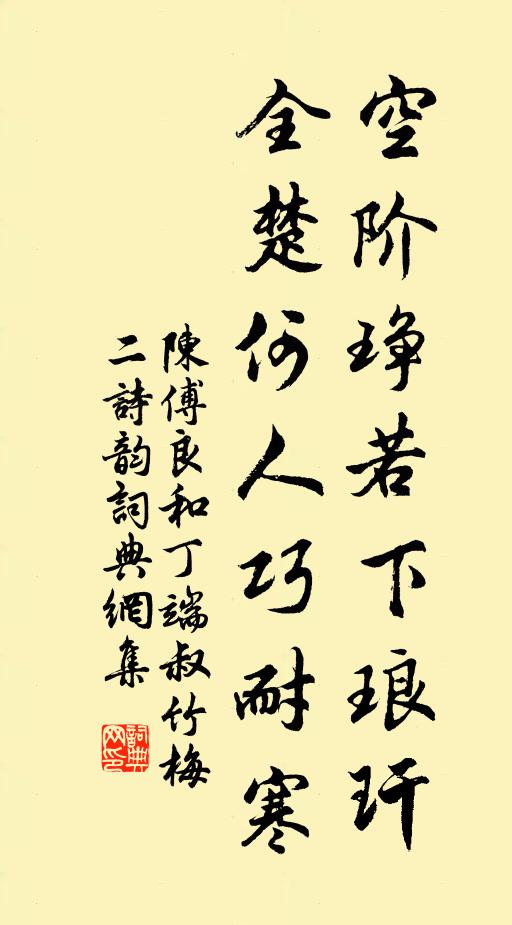 空阶琤若下琅玕
全楚何人巧耐寒
陳傅良和丁端叔竹梅
二詩韵詞典網集
詞典
网印